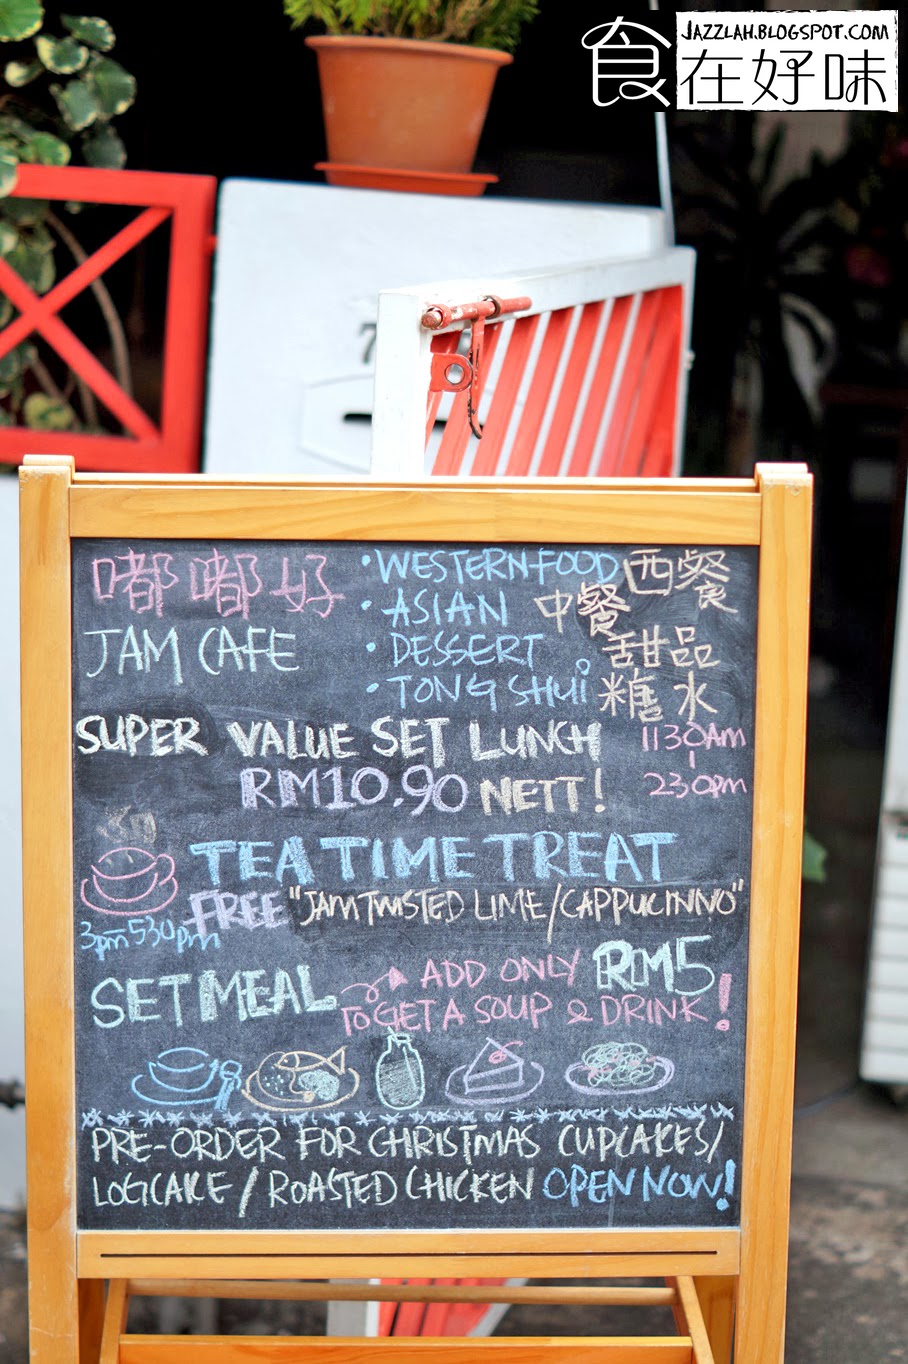 食在好味
JAZZLAH.BLOGSPOT.COM
7
嘟嘟好
JAM CAFE
• WESTERN FOOD 西餐
• ASIAN 中餐
• DESSERT 甜品
• TONG SHUi 糖水
SUPER VALUE SET LUNCH
RM10.90 NETT!
1130AM
|
230pm
TEA TIME TREAT
FREE "JAM TWISTED LIME/CAPPUCINNO"
3pm-530pm
SET MEAL ADD ONLY RM5
TO GET A SOUP & DRINK!
PRE-ORDER FOR CHRISTMAS CUPCAKES/
LOGCAKE / ROASTED CHICKEN OPEN NOW!